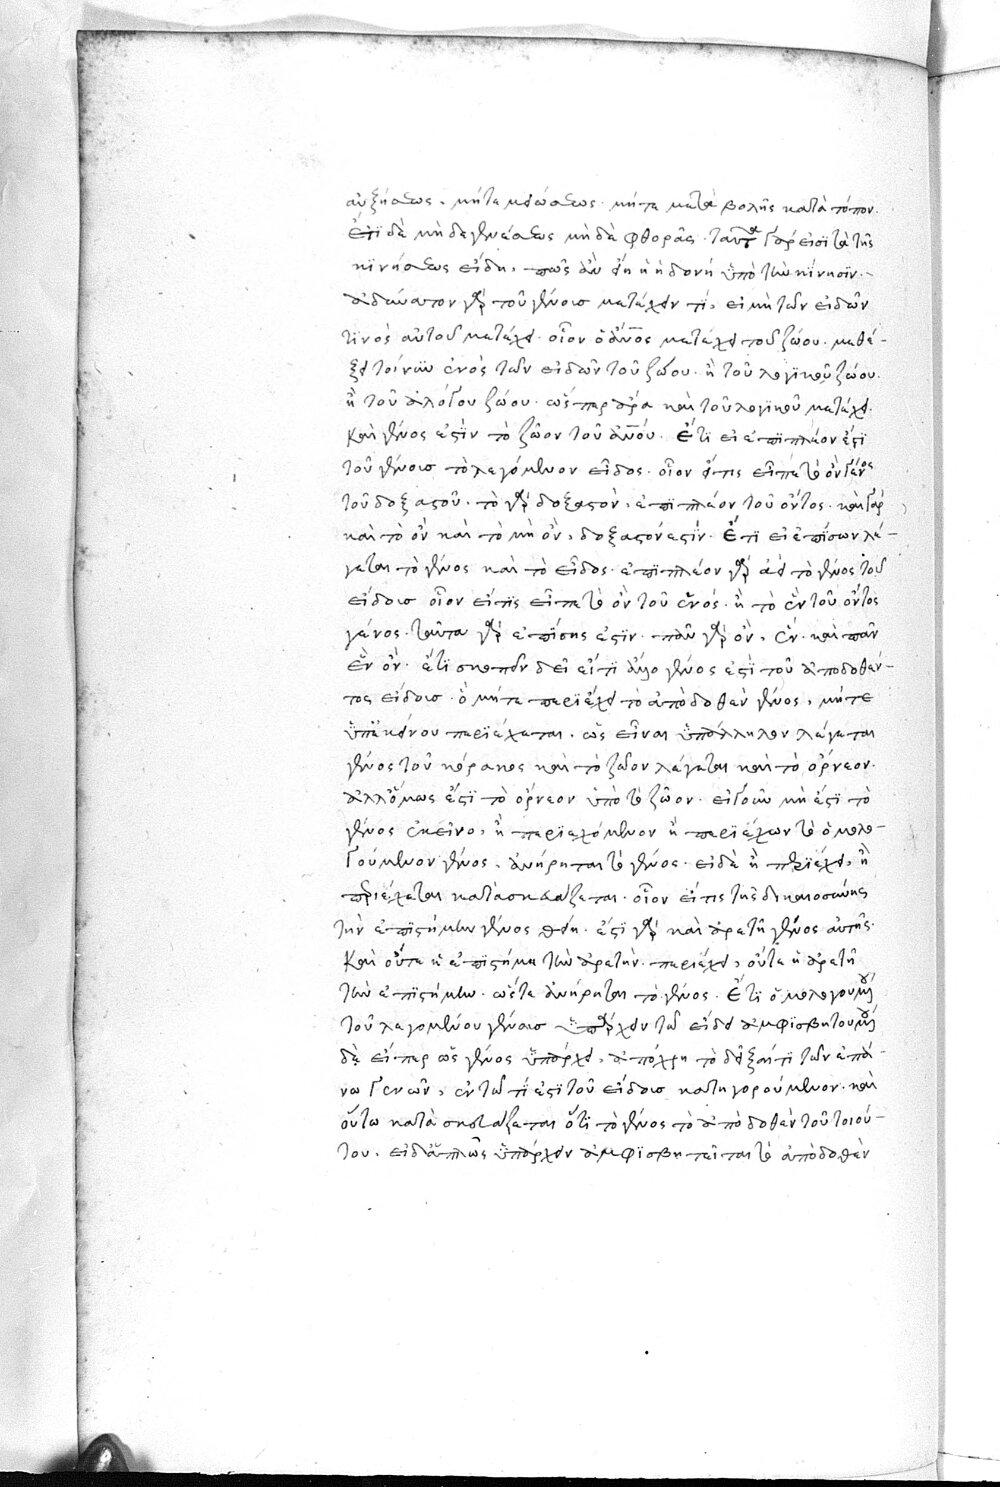 αὐξήσεως. μήτε μειώσεως. μήτε μεταβολῆς κατὰ τόπον.
ἔτι δὲ μηδὲ γενέσεως μηδὲ φθορᾶς. ταῦτα γάρ εἰσι τὰ τῆς
κινήσεως εἴδη, πῶς ἂν εἴη ἡ ἡδονὴ ὑπὸ τὴν κίνησιν.
ἀδύνατον γὰρ τοῦ γένους μετέχειν τί, εἰ μὴ τῶν εἰδῶν
τινὸς αὐτοῦ μετέχει. οἷον ὁ ἄνος μετέχει τοῦ ζώου. μεθέ-
ξει τοίνυν ἑνὸς τῶν εἰδῶν τοῦ ζώου. ἢ τοῦ λογικοῦ ζώου.
ἢ τοῦ ἀλόγου ζώου. ὥσπερ ἄρα καὶ τοῦ λογικοῦ μετέχει.
Καὶ γένος ἐστὶν τὸ ζῶον τοῦ ἀνου. Ἔτι εἰ ἐπιπλέον ἐστὶ
τοῦ γένους τὸ λεγόμενον εἶδος. οἷον εἴ τις εἴπε τὸ ὂν γένος
τοῦ δοξαστοῦ. τὸ γὰρ δοξαστὸν, ἐπιπλέον τοῦ ὄντος. καὶ γὰρ
καὶ τὸ ὂν καὶ τὸ μὴ ὂν, δοξαστόν ἐστίν. Ἔτι εἰ ἐπίσων λέ-
γεται τὸ γένος καὶ τὸ εἶδος. ἐπιπλέον γὰρ ἀεὶ τὸ γένος τοῦ
εἴδους οἷον εἴ τις εἴπε τὸ ὂν τοῦ ἑνός. ἢ τὸ ἓν τοῦ ὄντος
γένος. ταῦτα γὰρ ἐπίσης ἐστίν. πᾶν γὰρ ὂν, ἕν. καὶ πᾶν
ἓν ὄν. ἔτι σκοπεῖν δεῖ εἴ τι ἄλλο γένος ἐστὶ τοῦ ἀποδοθέν-
τος εἴδους. ὃ μήτε περιέχει τὸ ἀποδοθὲν γένος, μήτε
ὑπ' ἐκείνου περιέχεται. ὡς εἶναι ὑπάλληλον λέγεται
γένος τοῦ κόρακος καὶ τὸ ζῶον λέγεται καὶ τὸ ὄρνεον.
ἀλλ' ὅμως ἐστὶ τὸ ὄρνεον ὑπὸ τὸ ζῶον. εἰ γοῦν μὴ ἐστὶ τὸ
γένος ἐκεῖνο, ἢ περιεχόμενον ἢ περιέχων τὸ ὁμολο-
γούμενον γένος, ἀνήρηται τὸ γένος. εἰ δὲ ἢ περιέχει, ἢ
περιέχεται κατασκευάζεται. οἷον εἴ τις τῆς δικαιοσύνης
τὴν ἐπιστήμην γένος θείη. ἐστὶ γὰρ καὶ ἀρετὴ γένος αὐτῆς.
Καὶ οὔτε ἡ ἐπιστήμη τὴν ἀρετὴν περιέχει, οὔτε ἡ ἀρετὴ
τὴν ἐπιστήμην. ὥστε ἀνήρηται τὸ γένος. Ἔτι ὁμολογουμένου
τοῦ λεγομένου γένους ὑπάρχειν τῶ εἴδει ἀμφισβητουμένου
δὲ εἴπερ ὡς γένος ὑπάρχει, ἀπόχρη τὸ δεῖξαί τι τῶν ἐπά-
νω γενῶν, ἐν τῶ τί ἐστι τοῦ εἴδους κατηγορούμενον. καὶ
οὕτω κατασκευάζεται ὅτι τὸ γένος τὸ ἀποδοθὲν τοῦ τοιού-
του. εἰ δ' ἁπλῶς ὑπάρχειν ἀμφισβητεῖται τὸ ἀποδοθὲν